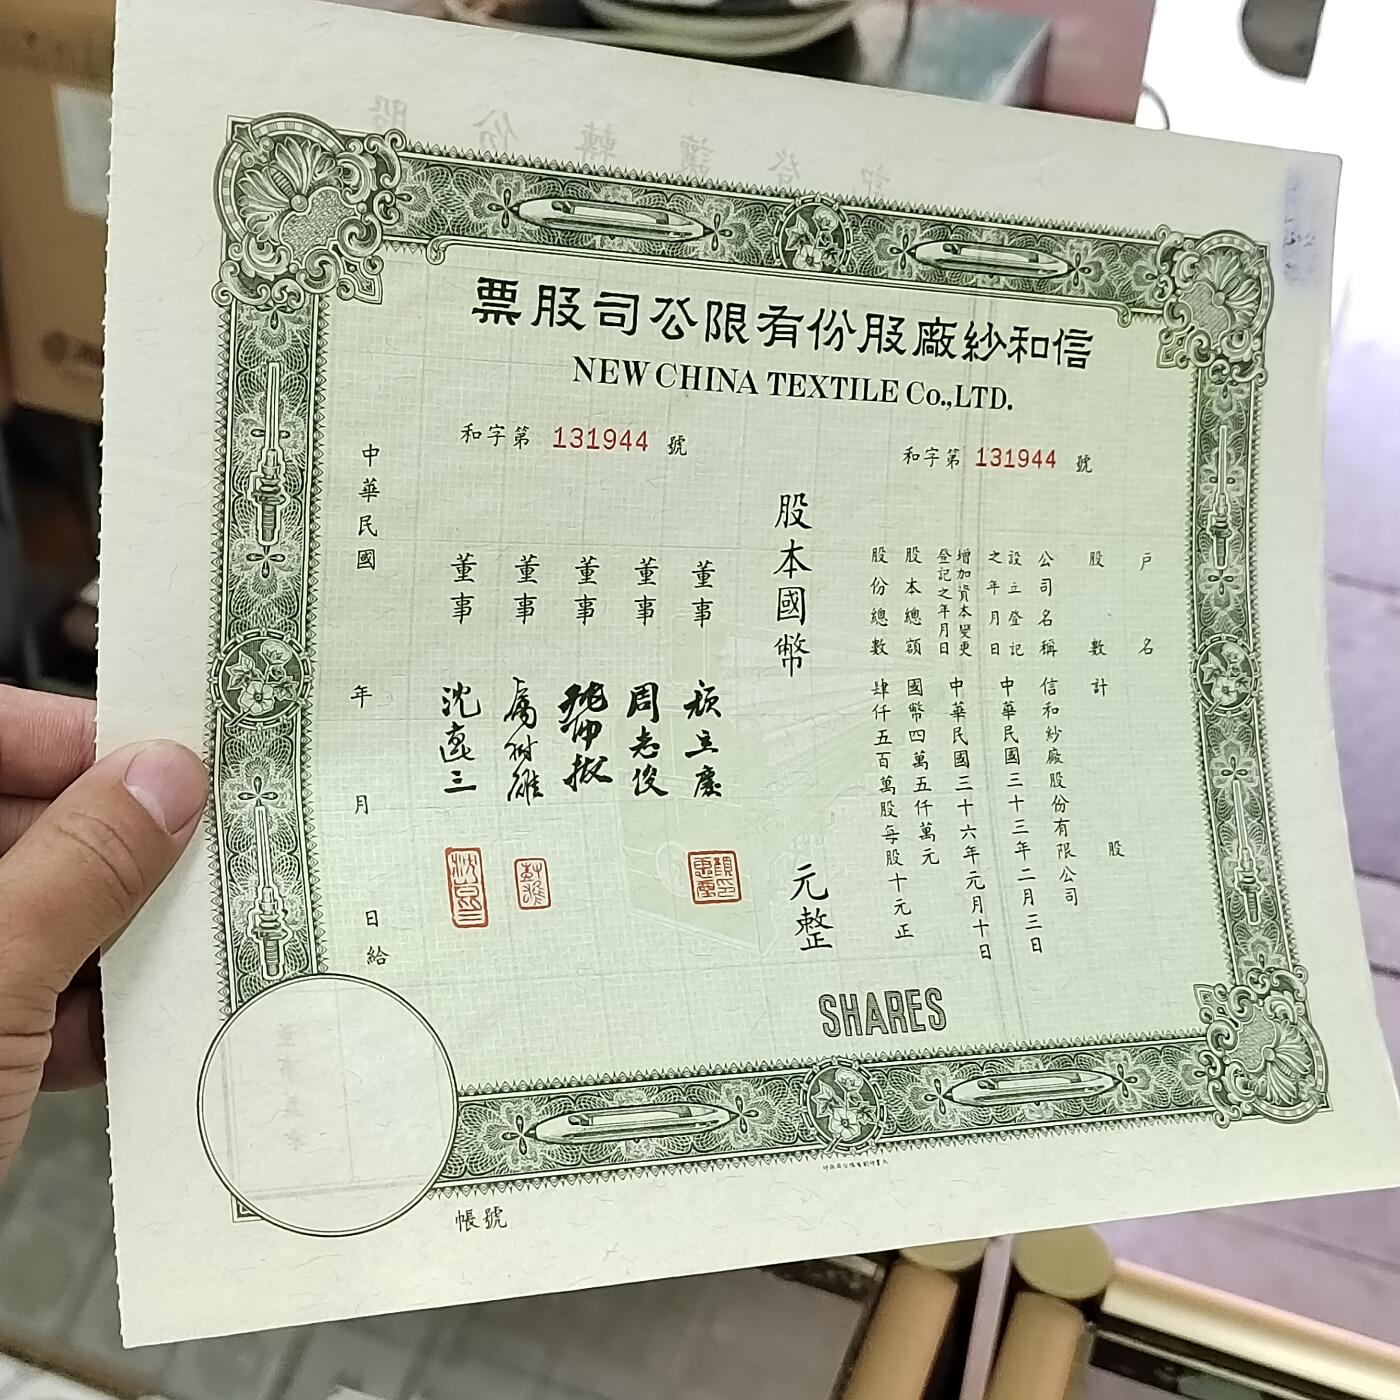 信和紗廠股份有限公司股票
NEW CHINA TEXTILE Co.,LTD.
和字第 131944 號
和字第 131944 號
戶名
股數計 股
公司名稱 信和紗廠股份有限公司
設立登記之年月日 中華民國三十三年二月三日
增加資本變更登記之年月日 中華民國三十六年元月十日
股本總額 國幣四萬五仟萬元
股份總數 肆仟五百萬股每股十元正
股本國幣 元整
董事
董事 周志俊
董事
董事 厲樹雄
董事 沈 三
中華民國 年 月 日給
SHARES
帳號